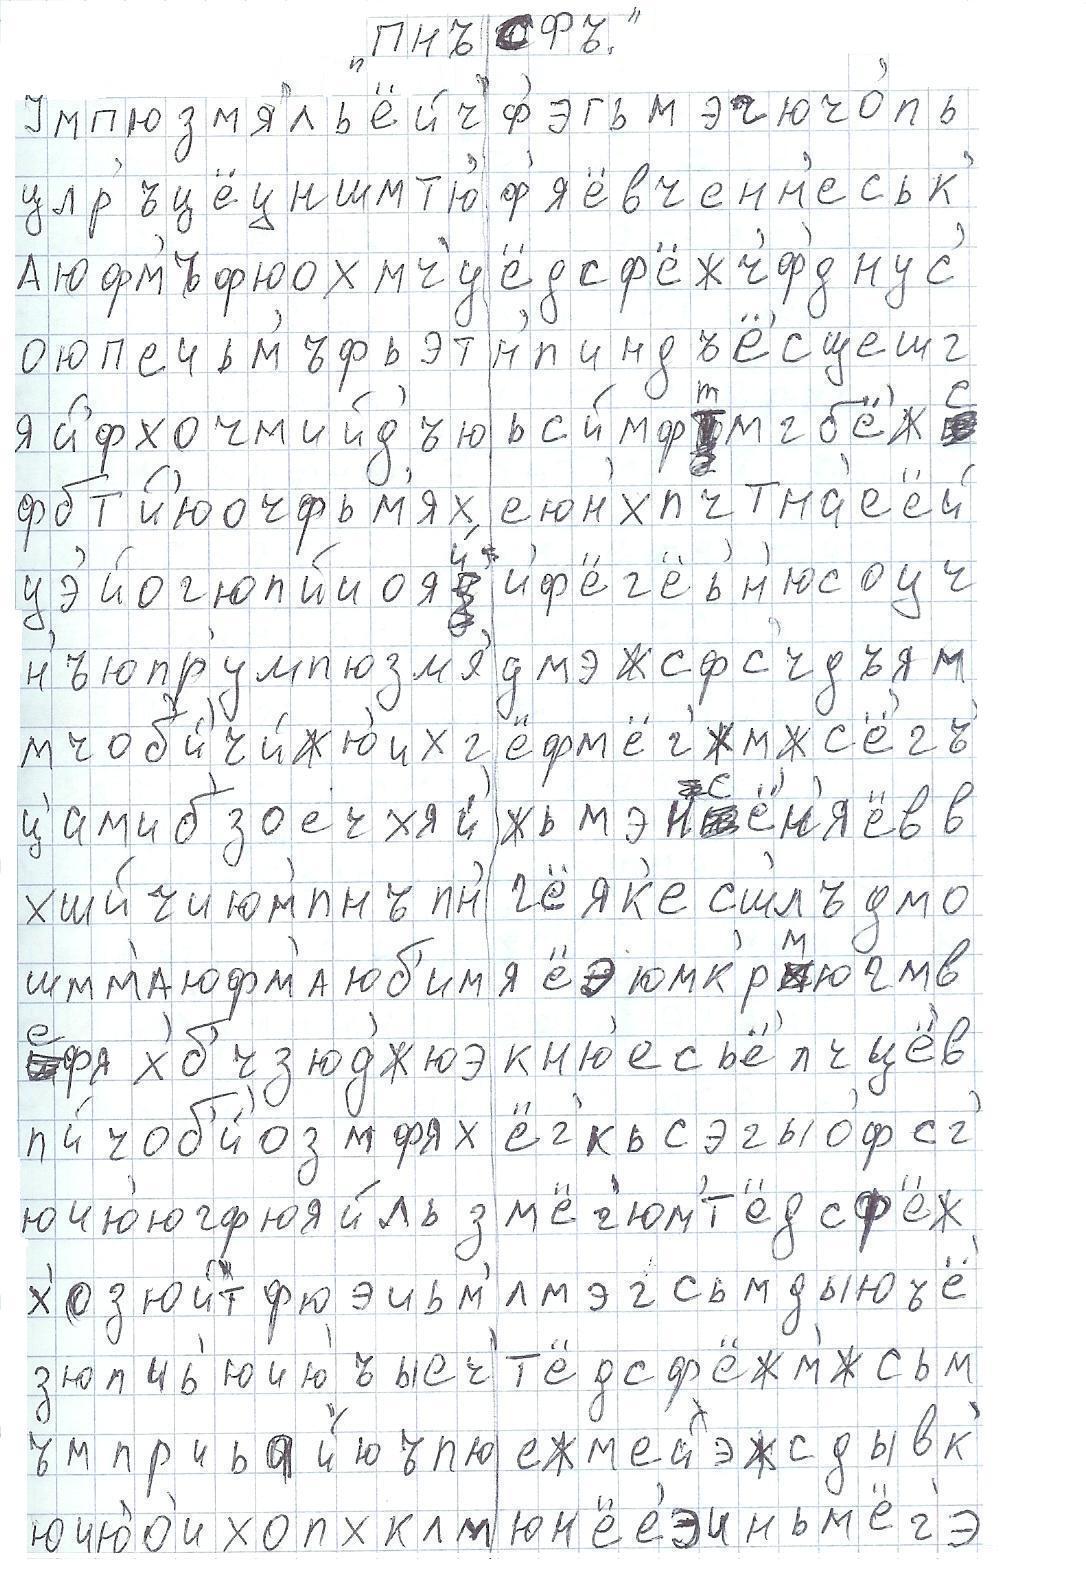 „ПНЪСФЪ."
Јмпюзмя'льёйч'ф'эгьмэчючо'пь
улр'ъцёцншмтю'ф'яёвченн'еськ'
Аюфм'ъфюохмч'цёдсфёжч'ф'днус'
оюпеиьм'ъфьэтн'пиндъё'сщешг
яй'фхочмийд'ъюьсймфтмгбё'жс
фбтй'юочфьм'ях'еюн'хпчтна'еёй
цэ'йогюпйиояй'и'фёгёь'н'юсоцч
н'ъюпр'умпюзмя'дмэжсфс'чдъям
мчоб'й'чйжю'ихгёфмёг'жмжсё'гъ'
ц'амиб'зоечхяй'жьмэнсё'н'яёвв
хшйчиюм'пнъпн'гёяк'есш'лъдмо
шмм'Аюфм'Аюб'имяёэюмк'рмюгмв
ефях'б'чзюд'жюэкню'есьё'лчцё'в
пйчоб'й'озмфяхёг'кьсэгыо'фсг'
ючю'югфюяйльзмёг'юм'тёдсфёж
х'озюйтфюэиьм'лмэгсьмдыюъё'
зюпчь'юию'ъыеч'тёдсфёжм'жсьм
ъмприьяй'юъпюежмей'эжсдывк'
юию'о'ихопхклмюнёе'эиньмёг'э